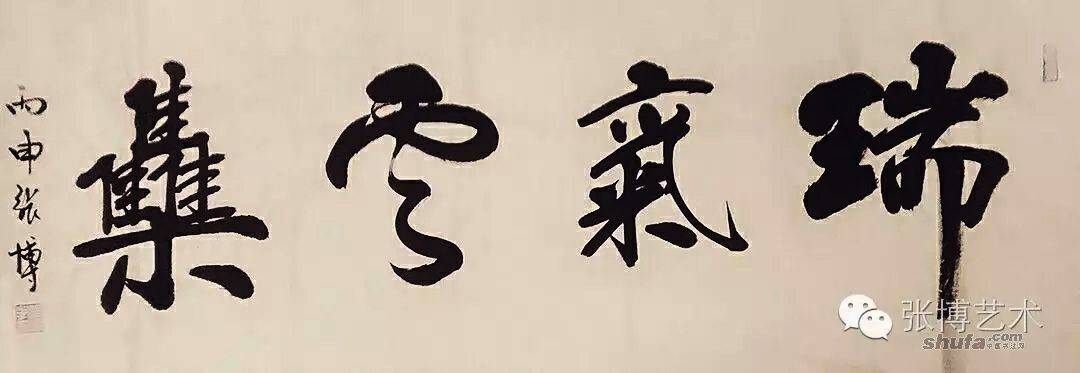 瑞氣雲雧
丙申張博
张博艺术
shufa.com